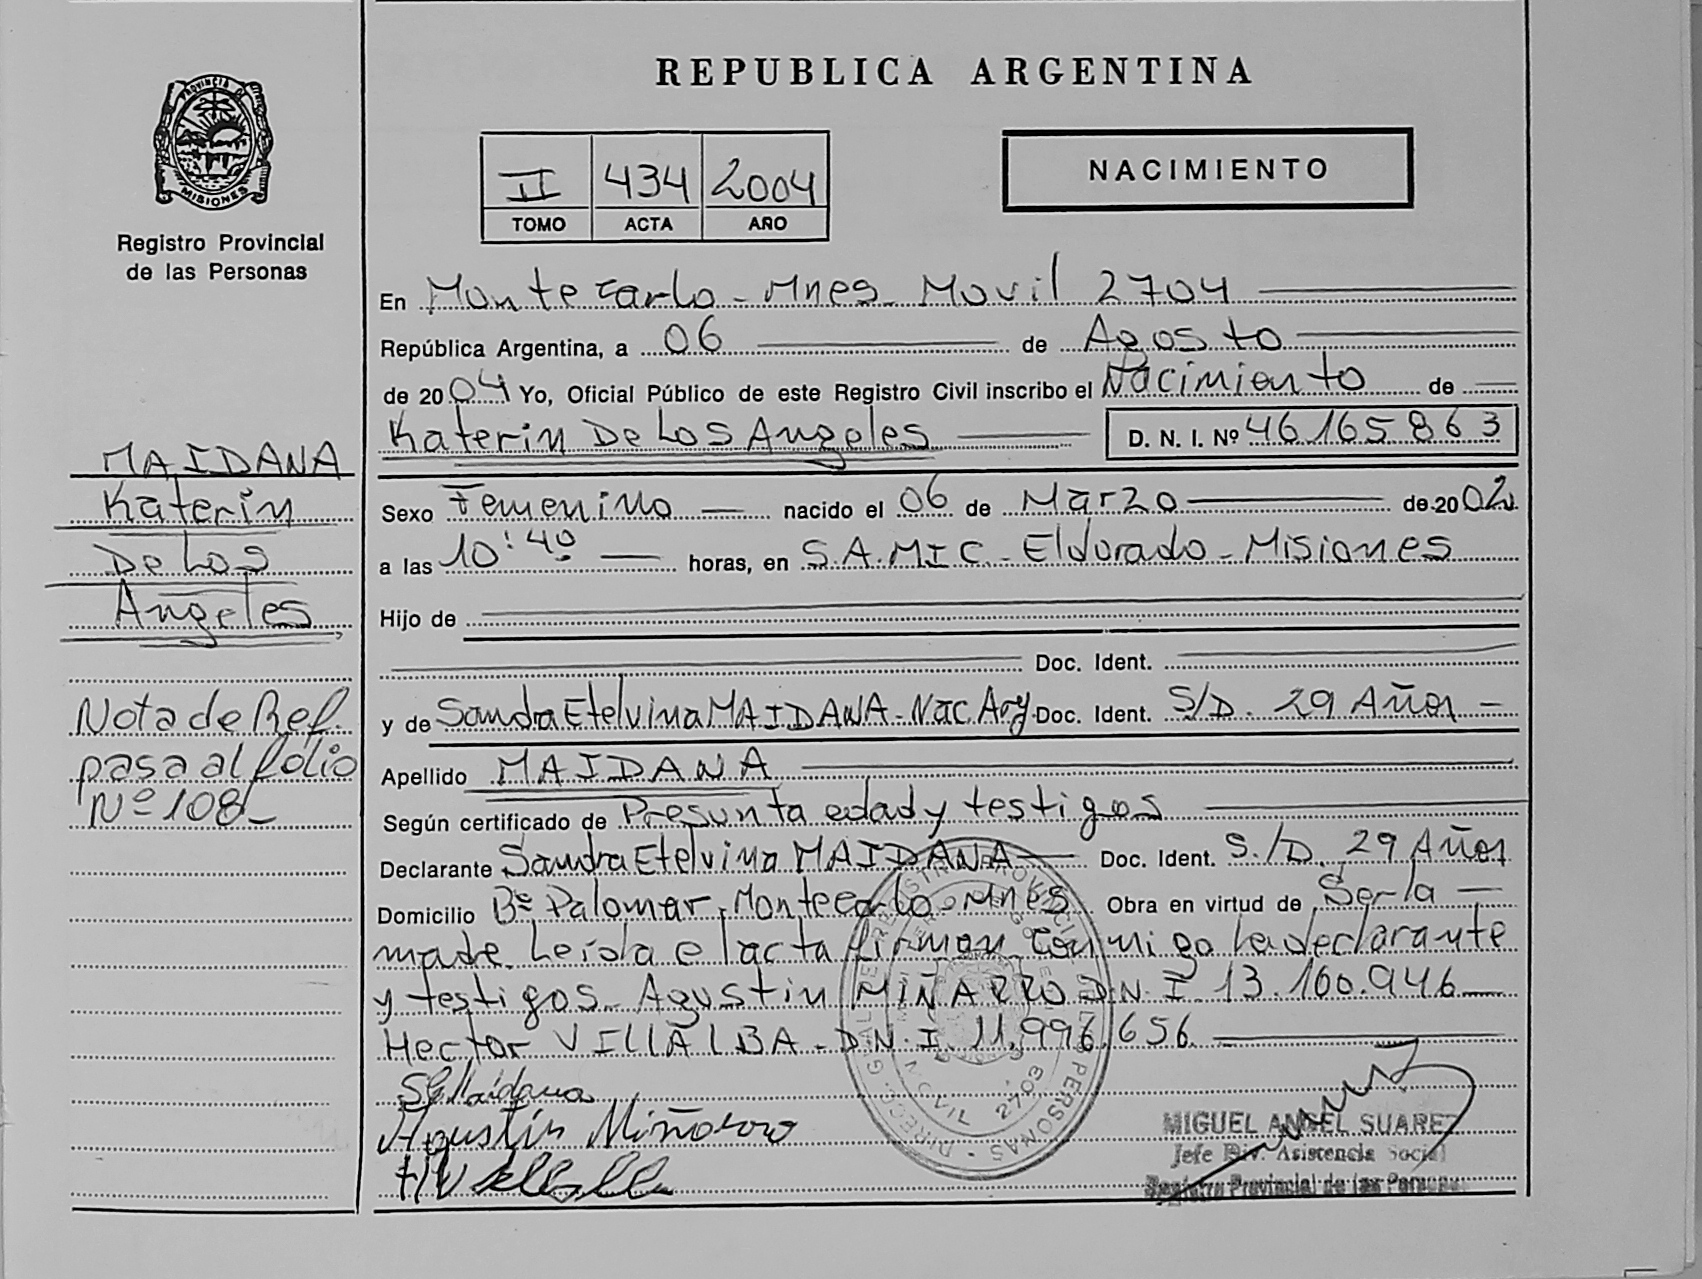 REPUBLICA ARGENTINA
PROVINCIA DE
MISIONES
Registro Provincial
de las Personas
II 434 2004
TOMO ACTA AÑO
NACIMIENTO
En Montecarlo - Mnes. Movil 2704
República Argentina, a 06 de Agosto
de 2004 Yo, Oficial Público de este Registro Civil inscribo el Nacimiento de
Katerin De Los Angeles D. N. I. Nº 46165863
MAIDANA
Katerin
De Los
Angeles
Sexo Femenino nacido el 06 de Marzo de 2002
a las 10:40 horas, en S.A.M.I.C. - Eldorado - Misiones
Hijo de
Doc. Ident.
y de Sandra Etelvina MAIDANA - Nac. Arg. Doc. Ident. S/D. 29 Años -
Apellido MAIDANA
Nota de Ref.
pasa al folio
Nº 108 -
Según certificado de Presunta edad y testigos
Declarante Sandra Etelvina MAIDANA Doc. Ident. S./D. 29 Años
Domicilio Bº Palomar - Montecarlo - Mnes. Obra en virtud de Ser la
madre. Leída el acta firman conmigo la declarante
y testigos. Agustin MIÑARRO D.N.I. 13.160.946
Hector VILLALBA - D.N.I. 11.996.656
SEMaidana
Agustín Miñarro
MIGUEL ANGEL SUAREZ
Jefe Div. Asistencia Social
Registro Provincial de las Personas